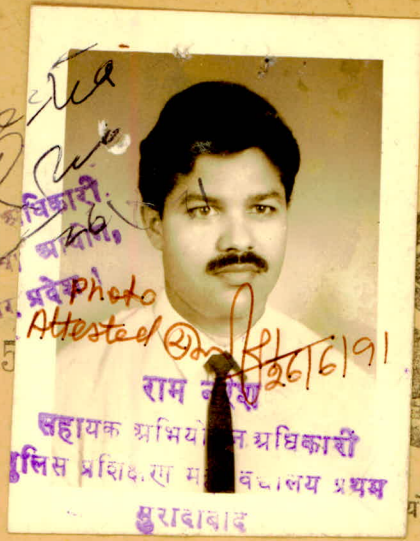 अधिकारी
आयोग,
प्रदेश
Photo
Attested
26/6/91
राम नरेश
सहायक अभियोजन अधिकारी
पुलिस प्रशिक्षण महाविद्यालय प्रथम
मुरादाबाद